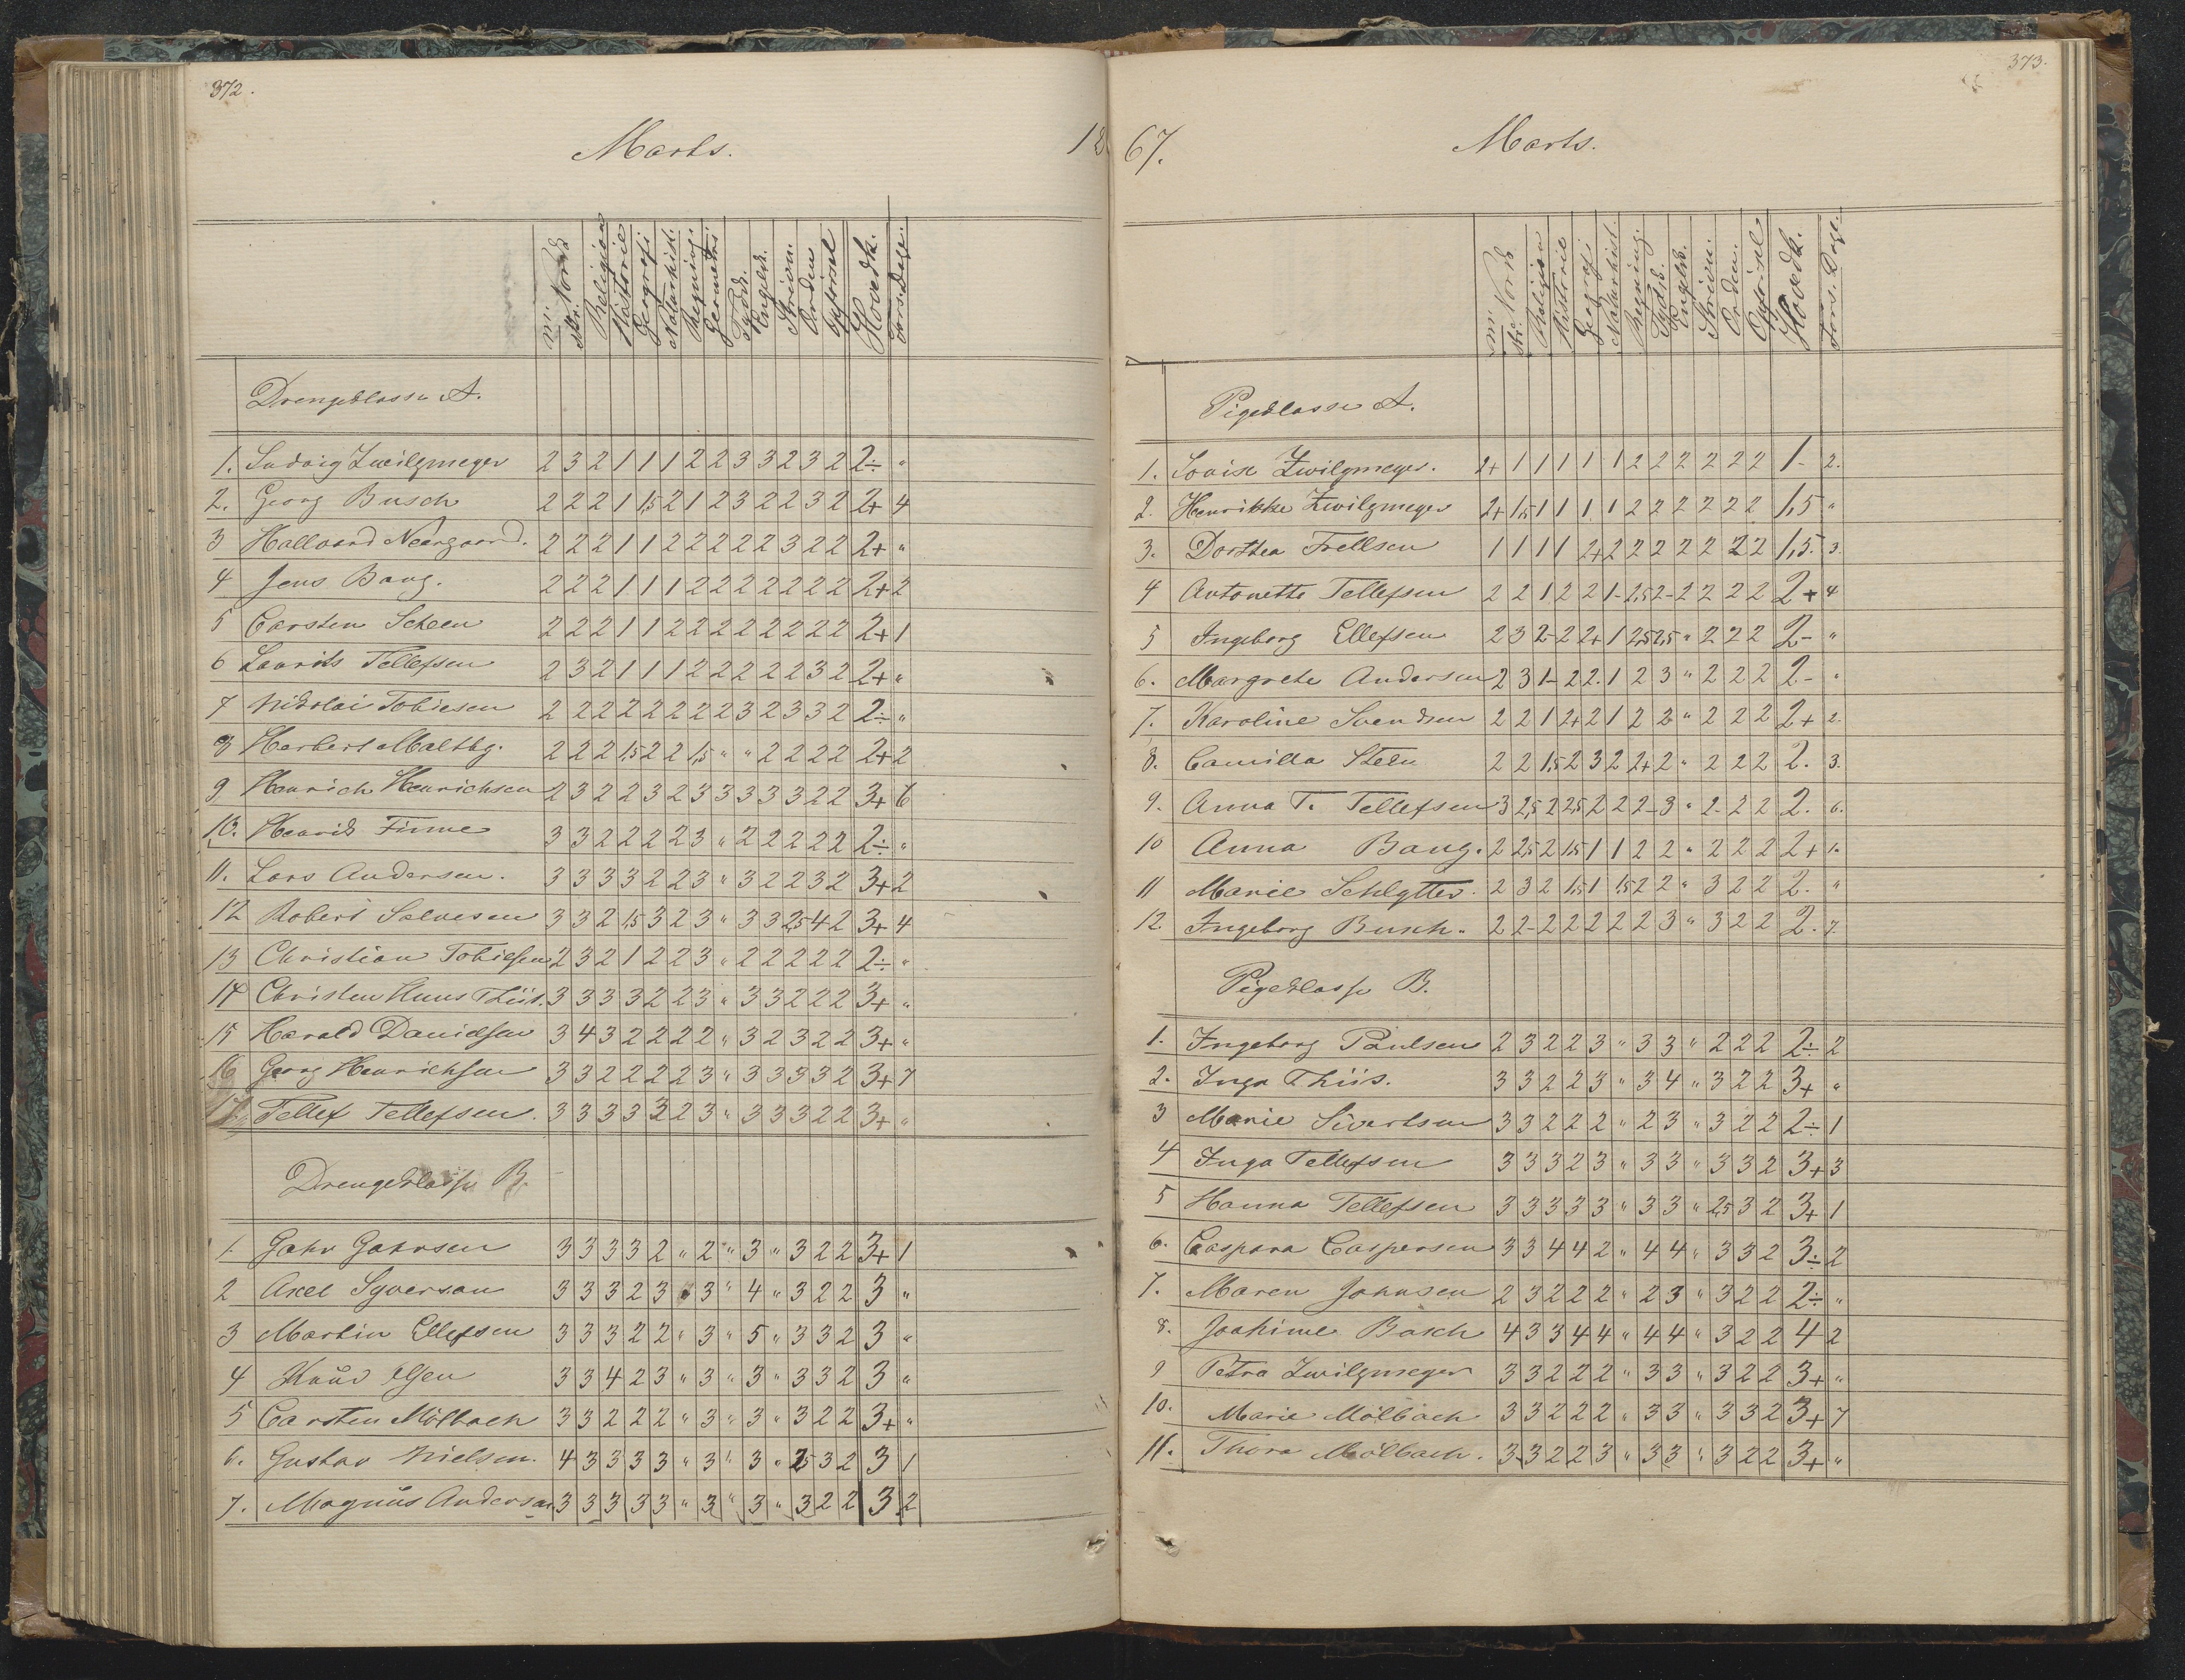 372.
Marts. 18
mt. Norsk
skr. Norsk
Religion
Historie
Geografi
Naturhist.
Regning.
Geometri.
Tydsk.
Engelsk.
Skrivn.
Orden
Opførsel
Hovedk.
Fors. Dage.
Drengeklasse A.
1. Ludvig Zwilgmeyer 2 3 2 1 1 1 2 2 3 3 2 3 2 2÷ "
2. Georg Busch 2 2 2 1 1,5 2 1 2 3 2 2 3 2 2+ 4
3 Hallvard Neergaard. 2 2 2 1 1 2 2 2 2 2 3 2 2 2+ "
4 Jens Bang. 2 2 2 1 1 1 2 2 2 2 2 2 2 2+ 2
5 Carsten Scheen 2 2 2 1 1 2 2 2 2 2 2 2 2 2+ 1
6 Laurits Tellefsen 2 3 2 1 1 1 2 2 2 2 2 3 2 2+ "
7 Nikolai Tobiesen 2 2 2 2 2 2 2 2 3 2 3 3 2 2÷ "
8 Herbert Maltbg. 2 2 2 1,5 2 2 1,5 " " 2 2 2 2 2+ 2
9 Henrich Henrichsen 2 3 2 2 3 2 3 3 3 3 3 2 2 3+ 6
10. Henrik Finne 3 3 2 2 2 2 3 " 2 2 2 2 2 2÷ "
11. Lars Andersen. 3 3 3 3 2 2 3 " 3 2 2 3 2 3+ 2
12 Robert Salvesen 3 3 2 1,5 3 2 3 " 3 3 2,5 4 2 3+ 4
13 Christian Tobiesen 2 3 2 1 2 2 3 " 2 2 2 2 2 2÷ "
14 Christen Huus Thiis. 3 3 3 3 2 2 3 " 3 3 2 2 2 3+ "
15 Harald Danielsen 3 4 3 2 2 2 2 " 3 2 3 2 2 3+ "
16 Georg Henrichsen 3 3 2 2 2 2 3 " 3 3 3 3 2 3+ 7
17 Tellef Tellefsen. 3 3 3 3 3 2 3 " 3 3 3 2 2 3+ "
Drengeklasse B.
1. Jahn Jahnsen 3 3 3 3 2 " 2 " 3 " 3 2 2 3+ 1
2 Axel Syversen 3 3 3 2 3 " 3 " 4 " 3 2 2 3 "
3 Martin Ellefsen 3 3 3 2 2 " 3 " 5 " 3 3 2 3 "
4 Knud Olsen 3 3 4 2 3 " 3 " 3 " 3 3 2 3 "
5 Carsten Mölbach 3 3 2 2 2 " 3 " 3 " 3 2 2 3+ "
6. Gustav Nielsen. 4 3 3 3 3 " 3 " 3 " 2,5 3 2 3 1
7. Magnus Andersen 3 3 3 3 3 " 3 " 3 " 3 2 2 3 2
373.
67. Marts.
mt. Norsk
skr.
Religion
Historie
Geografi
Naturhist.
Regning.
Tydsk.
Engelsk.
Skrivn.
Orden.
Opførsel
Hovedk.
Fors. Dage.
Pigeklasse A.
1. Lovise Zwilgmeyer. 2+ 1 1 1 1 1 2 2 2 2 2 2 1- 2.
2. Henrikke Zwilgmeyer 2+ 1,5 1 1 1 1 2 2 2 2 2 2 1,5 "
3. Dorthea Frellsen 1 1 1 1 2+ 2 2 2 2 2 2 2 1,5. 3.
4 Antonette Tellefsen 2 2 1 2 2 1- 2,5 2- 2 2 2 2 2+ 4
5 Ingeborg Ellefsen 2 3 2- 2 2+ 1 2,5 2,5 " 2 2 2 2- "
6. Margrete Andersen 2 3 1- 2 2. 1 2 3 " 2 2 2 2- "
7. Karoline Svendsen 2 2 1 2+ 2 1 2 2 " 2 2 2 2+ 2.
8. Camilla Steen 2 2 1,5 2 3 2 2+ 2 " 2 2 2 2. 3.
9. Anna T. Tellefsen 3 2,5 2 2,5 2 2 2- 3 " 2- 2 2 2. 6.
10 Anna Bang. 2 2,5 2 1,5 1 1 2 2 " 2 2 2 2+ 1.
11 Marie Schlytter. 2 3 2 1,5 1 1,5 2 2 " 3 2 2 2. "
12. Ingeborg Busch. 2 2- 2 2 2 2 2 3 " 3 2 2 2. 7.
Pigeklasse B.
1. Ingeborg Paulsen 2 3 2 2 3 " 3 3 " 2 2 2 2÷ 2
2. Inga Thiis. 3 3 2 2 3 " 3 4 " 3 2 2 3+ "
3 Marie Sivertsen 3 3 2 2 2 " 2 3 " 3 2 2 2÷ 1
4 Inga Tellefsen 3 3 3 2 3 " 3 3 " 3 3 2 3+ 3
5 Hanna Tellefsen 3 3 3 3 3 " 3 3 " 2,5 3 2 3+ 1
6. Caspara Caspersen 3 3 4 4 2 " 4 4 " 3 3 2 3÷ 2
7. Maren Johnsen 2 3 2 2 2 " 2 3 " 3 2 2 2÷ "
8. Joakime Basch 4 3 3 4 4 " 4 4 " 3 2 2 4 2
9 Petra Zwilgmeyer 3 3 2 2 2 " 3 3 " 3 2 2 3+ "
10. Marie Mölbach 3 3 2 2 2 " 3 3 " 3 3 2 3+ 7
11. Thora Mölbach. 3 3 2 2 3 " 3 3 " 3 2 2 3+ "